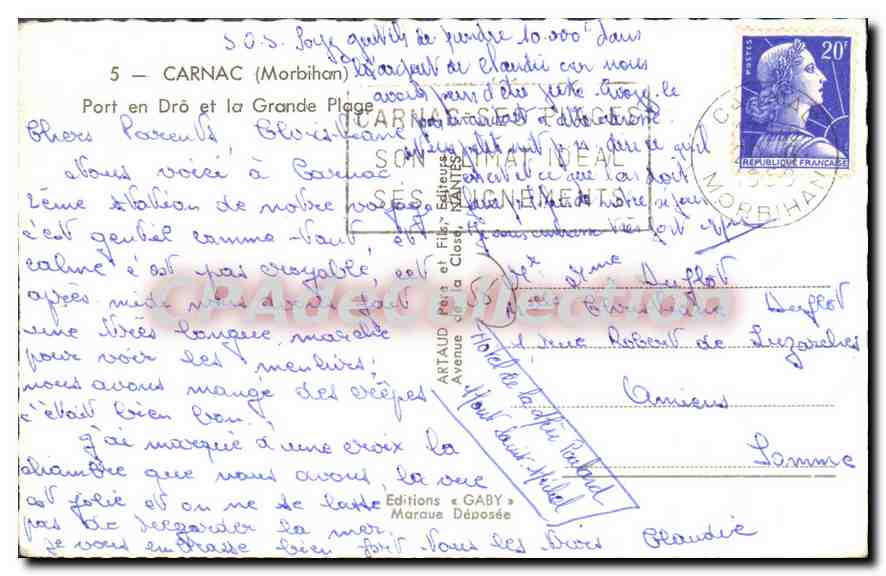 S.O.S. Soyez gentils de prendre 10.000f dans
l'argent de Claudie car nous
avons peur d'être juste
5 — CARNAC (Morbihan)
Port en Drô et la Grande Plage
CARNAC SES PLAGES
SON CLIMAT IDEAL
SES ALIGNEMENTS
CARNAC
MORBIHAN
POSTES
20F
REPUBLIQUE FRANÇAISE
Chers Parents,
Nous voici à Carnac
2ème station de notre voyage
c'est gentil comme tout, et
calme c'est pas croyable, cet
après-midi nous avons fait
une très longue marche
pour voir les menhirs,
nous avons mangé des crêpes
c'était bien bon.
J'ai marqué d'une croix la
chambre que nous avons, la vue
est jolie et on ne se lasse
pas de regarder la mer.
Je vous embrasse bien fort tous les trois Claudie
ARTAUD Père et Fils, Editeurs
Avenue de la Close, NANTES
Editions « GABY »
Marque Déposée
Mr et Mme Duflot
Duflot
1 rue Robert de Luzarches
Amiens
Somme
Hotel de la Mère Poulard
Mont Saint-Michel
CPAdeCollection